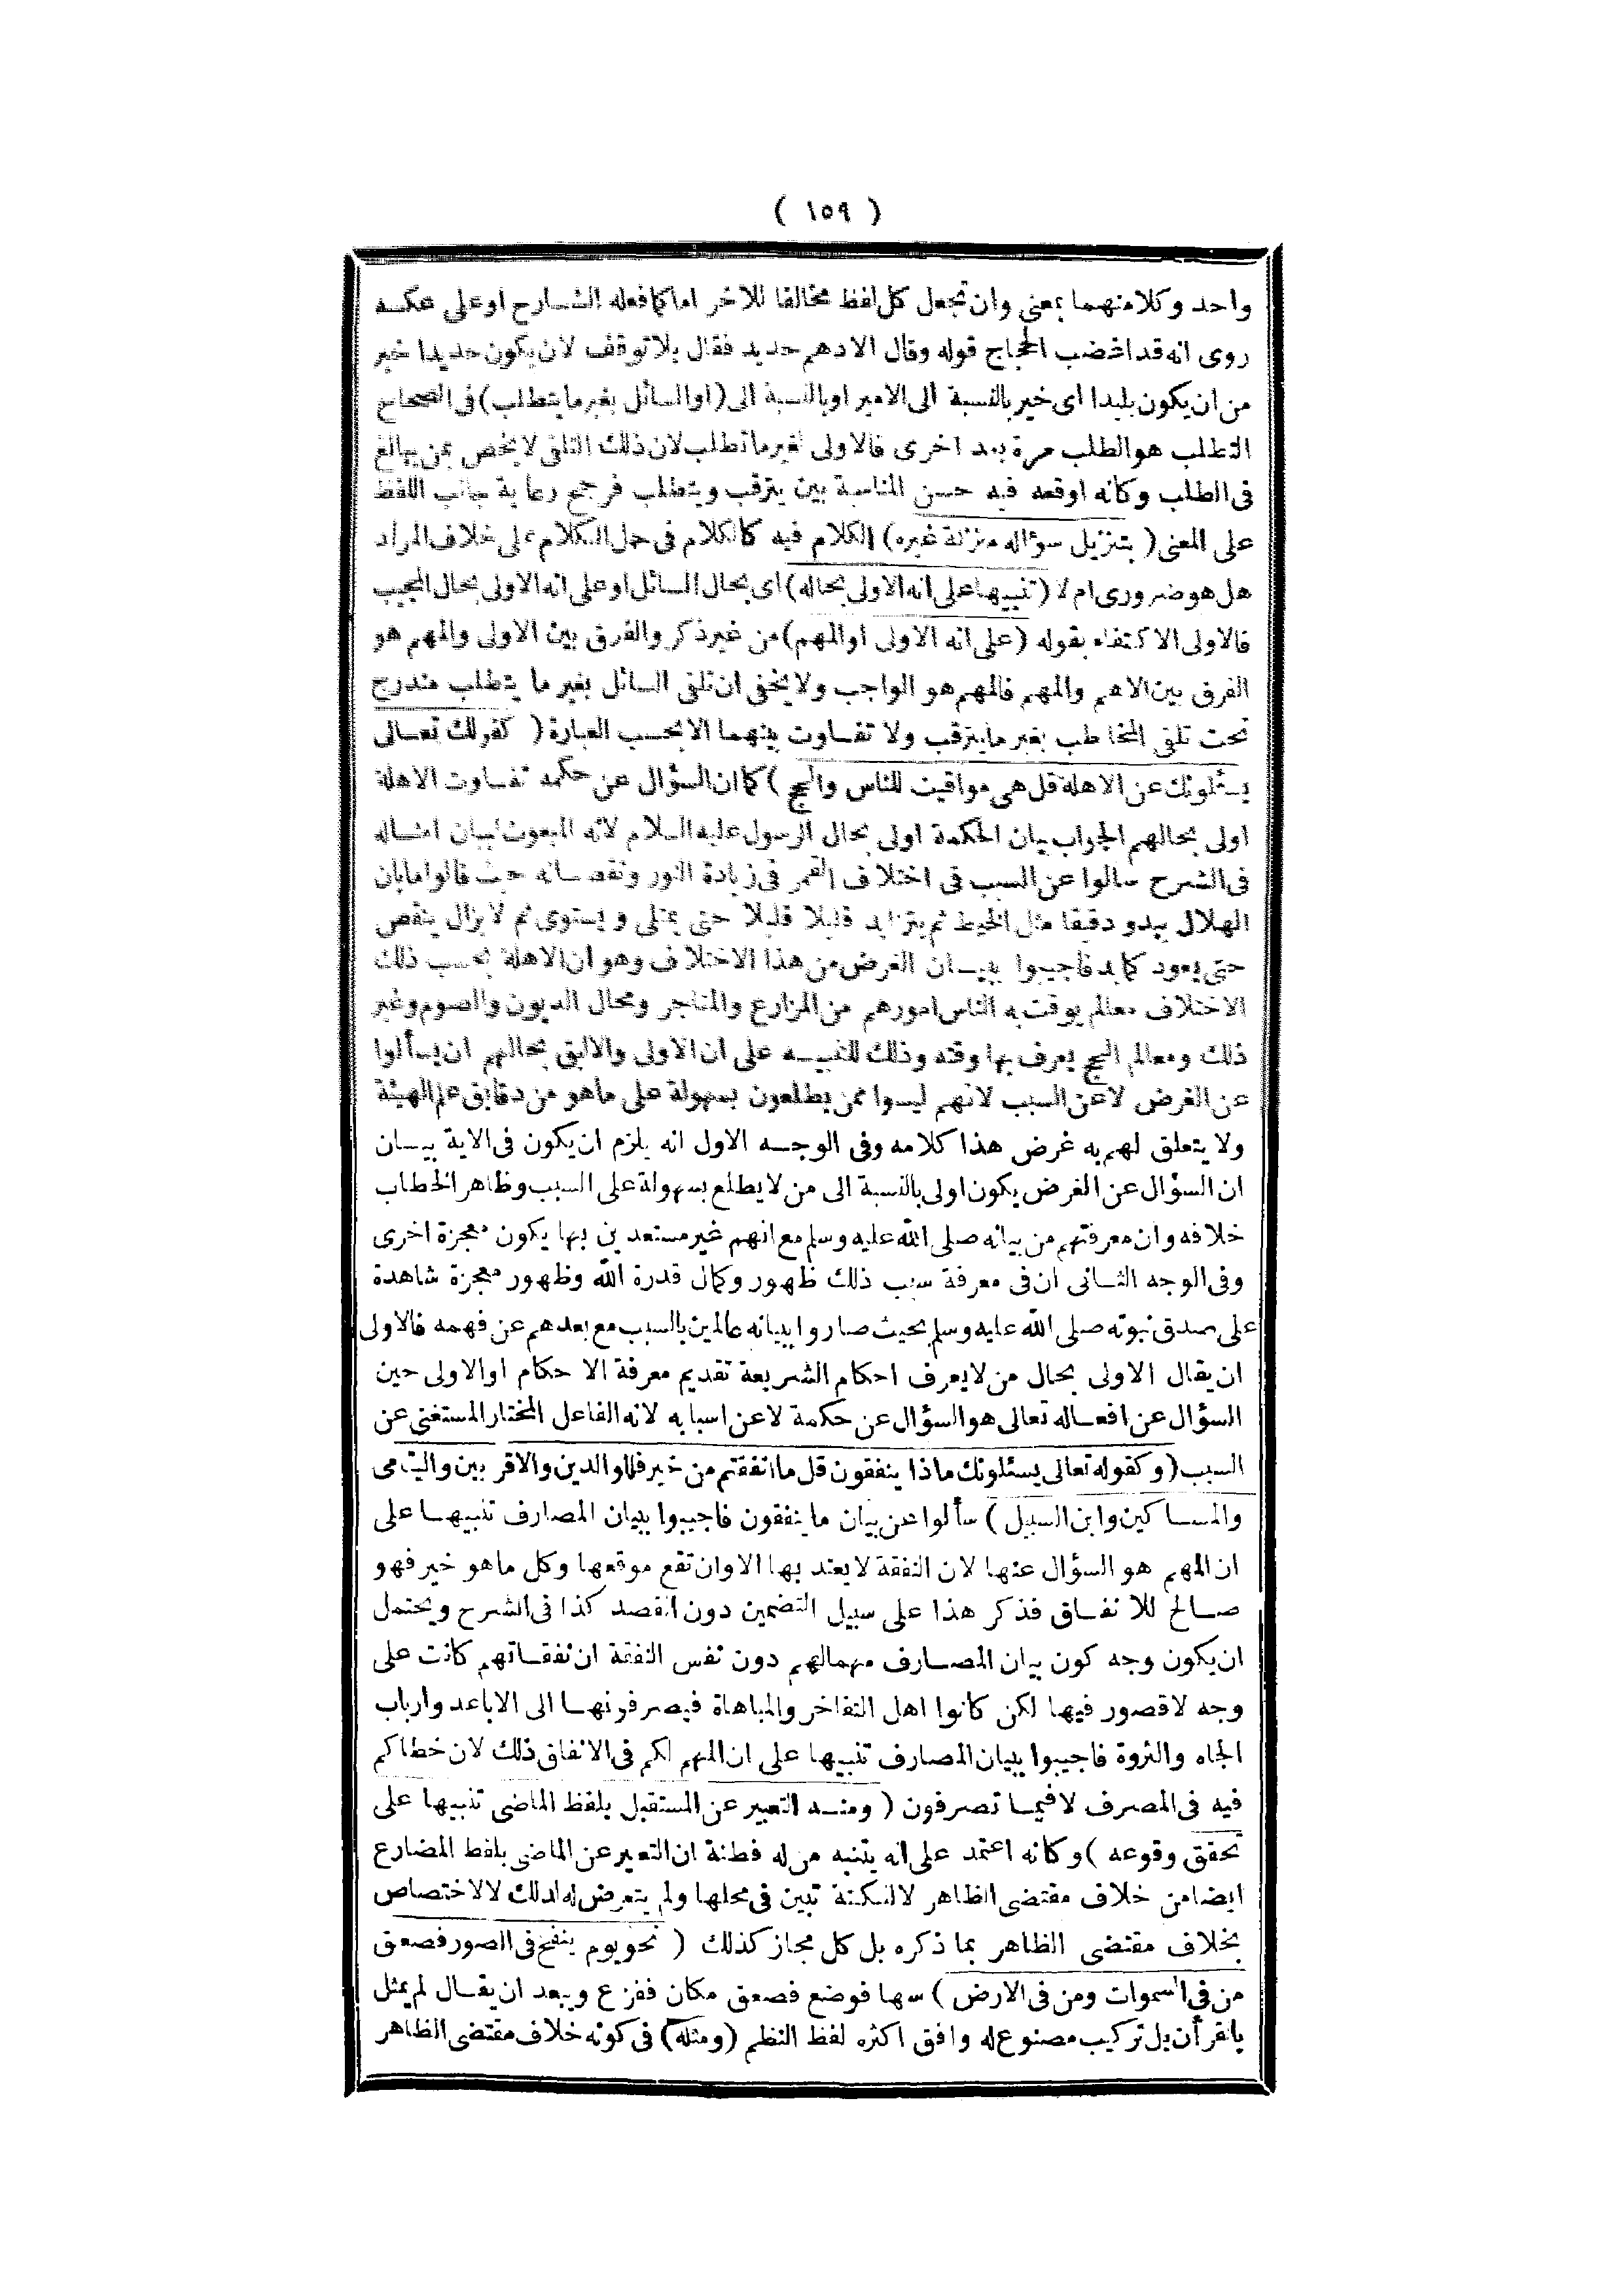 ( ١٥٩ )
واحد وكلا منهما بمعنى وان تجعل كل لفظ مخالفا للاخر اما كما فعله الشارح او على عكسه
روى انه قد اغضب الحجاج قوله وقال الادهم حديد فقال بلا توقف لان يكون حديدا خير
من ان يكون بليدا اى خير بالنسبة الى الامير او بالنسبة الى (او السائل بغير ما يتطلب) فى الصحاح
التطلب هو الطلب مرة بعد اخرى فالاولى لغير ما تطلب لان ذلك التلقى لا يخص بمن يبالغ
فى الطلب وكانه اوقعه فيه حسن المناسبة بين يترقب ويتطلب فرجح رعاية جانب اللفظ
على المعنى ( بتنزيل سؤاله منزلة غيره) الكلام فيه كالكلام فى حمل الكلام على خلاف المراد
هل هو ضرورى ام لا (تنبيها على انه الاولى بحاله) اى بحال السائل او على انه الاولى بحال المجيب
فالاولى الاكتفاء بقوله (على انه الاولى او المهم) من غير ذكر والفرق بين الاولى والمهم هو
الفرق بين الاهم والمهم فالمهم هو الواجب ولا يخفى ان تلقى السائل بغير ما يتطلب مندرج
تحت تلقى المخاطب بغير ما يترقب ولا تفاوت بينهما الا بحسب العبارة ( كقولك تعالى
يسئلونك عن الاهلة قل هى مواقيت للناس والحج ) كما ان السؤال عن حكمه تفاوت الاهلة
اولى بحالهم الجواب بيان الحكمة اولى بحال الرسول عليه السلام لانه المبعوث لبيان امثاله
فى الشرح سالوا عن السبب فى اختلاف القمر فى زيادة النور ونقصانه حيث قالوا ما بان
الهلال يبدو دقيقا مثل الخيط ثم يتزايد قليلا قليلا حتى يمتلى ويستوى ثم لا يزال ينقص
حتى يعود كما بد فاجيبوا ببيان الغرض من هذا الاختلاف وهو ان الاهلة بحسب ذلك
الاختلاف معالم يوقت به الناس امورهم من المزارع والمتاجر ومحال الديون والصوم وغير
ذلك ومعالم الحج يعرف بها وقته وذلك للتنبيه على ان الاولى والاليق بحالهم ان يسألوا
عن الغرض لا عن السبب لانهم ليسوا ممن يطلعون بسهولة على ما هو من دقايق علم الهيئة
ولا يتعلق لهم به غرض هذا كلامه وفى الوجه الاول انه يلزم ان يكون فى الاية بيان
ان السؤال عن الغرض يكون اولى بالنسبة الى من لا يطلع بسهولة على السبب وظاهر الخطاب
خلافه وان معرفتهم من بيانه صلى الله عليه وسلم مع انهم غير مستعدين بها يكون معجزة اخرى
وفى الوجه الثانى ان فى معرفة سبب ذلك ظهور وكمال قدرة الله وظهور معجزة شاهدة
على صدق نبوته صلى الله عليه وسلم بحيث صاروا ببيانه عالمين بالسبب مع بعدهم عن فهمه فالاولى
ان يقال الاولى بحال من لا يعرف احكام الشريعة تقديم معرفة الاحكام او الاولى حين
السؤال عن افعاله تعالى هو السؤال عن حكمة لا عن اسبابه لانه الفاعل المختار المستغنى عن
السبب (وكقوله تعالى يسئلونك ماذا ينفقون قل ما انفقتم من خير فللوالدين والاقربين واليتامى
والمساكين وابن السبيل ) سألوا عن بيان ما ينفقون فاجيبوا ببيان المصارف تنبيها على
ان المهم هو السؤال عنها لان النفقة لا يعتد بها الا وان تقع موقعها وكل ما هو خير فهو
صالح للانفاق فذكر هذا على سبيل التضمين دون القصد كذا فى الشرح ويحتمل
ان يكون وجه كون بيان المصارف مهمالهم دون نفس النفقة ان نفقاتهم كانت على
وجه لا قصور فيها لكن كانوا اهل التفاخر والمباهاة فيصرفونها الى الاباعد وارباب
الجاه والثروة فاجيبوا ببيان المصارف تنبيها على ان المهم لكم فى الانفاق ذلك لان خطاكم
فيه فى المصرف لا فيما تصرفون ( ومنه التعبير عن المستقبل بلفظ الماضى تنبيها على
تحقق وقوعه ) وكانه اعتمد على انه يتنبه من له فطنة ان التعبير عن الماضى بلفظ المضارع
ايضا من خلاف مقتضى الظاهر لالنكتة تبين فى محلها ولم يتعرض له لدلك لا لاختصاص
بخلاف مقتضى الظاهر بما ذكره بل كل مجاز كذلك ( نحو يوم ينفخ فى الصور فصعق
من فى السموات ومن فى الارض ) سها فوضع فصعق مكان ففزع ويبعد ان يقال لم يمثل
بالقرأن بل تركيب مصنوع له وافق اكثره لفظ النظم (ومثله) فى كونه خلاف مقتضى الظاهر